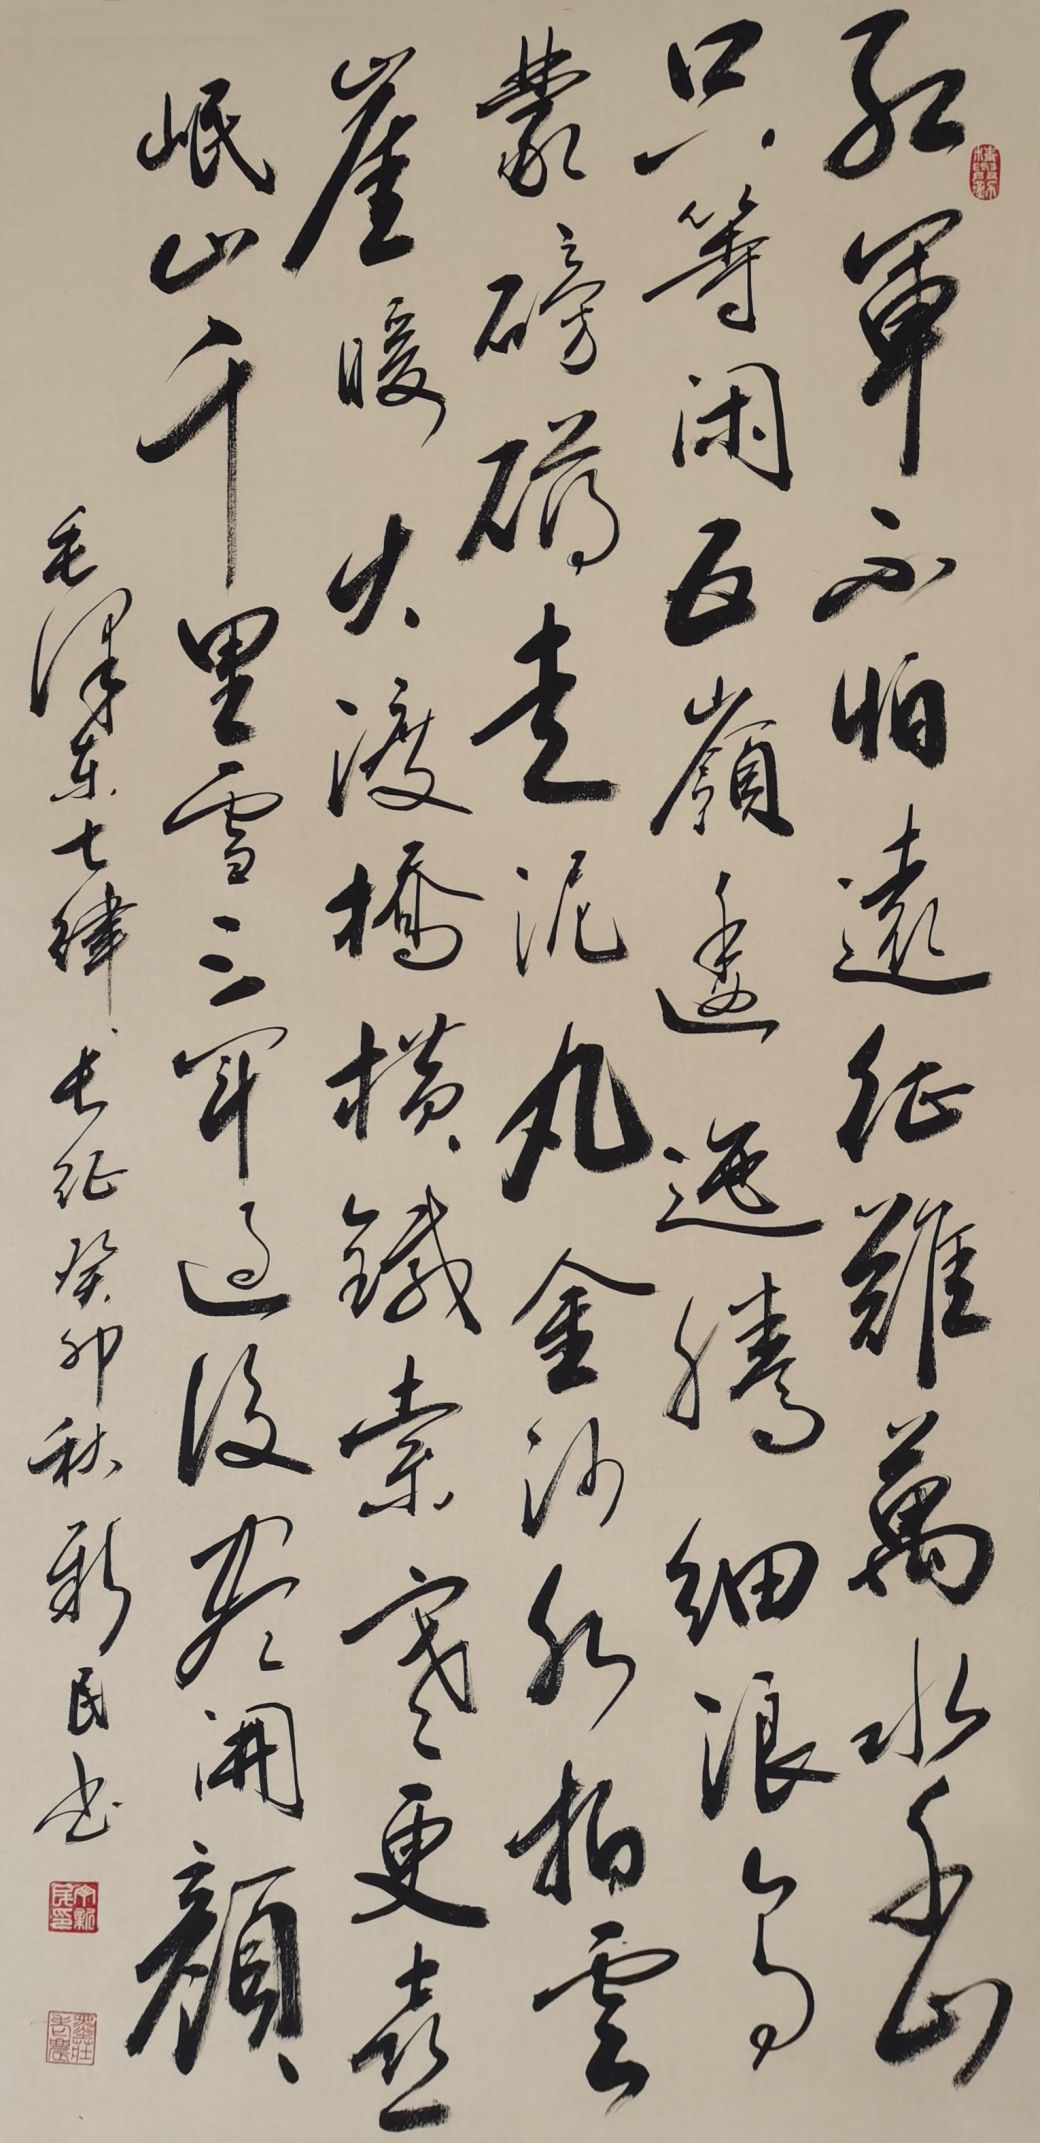 紅軍不怕遠征難萬水千山
只等闲五嶺逶迤騰細浪烏
蒙磅礴走泥丸金沙水拍雲
崖暖大渡橋橫鐵索寒更喜
岷山千里雪三军過後盡開顏
毛泽东七律长征癸卯秋新民书